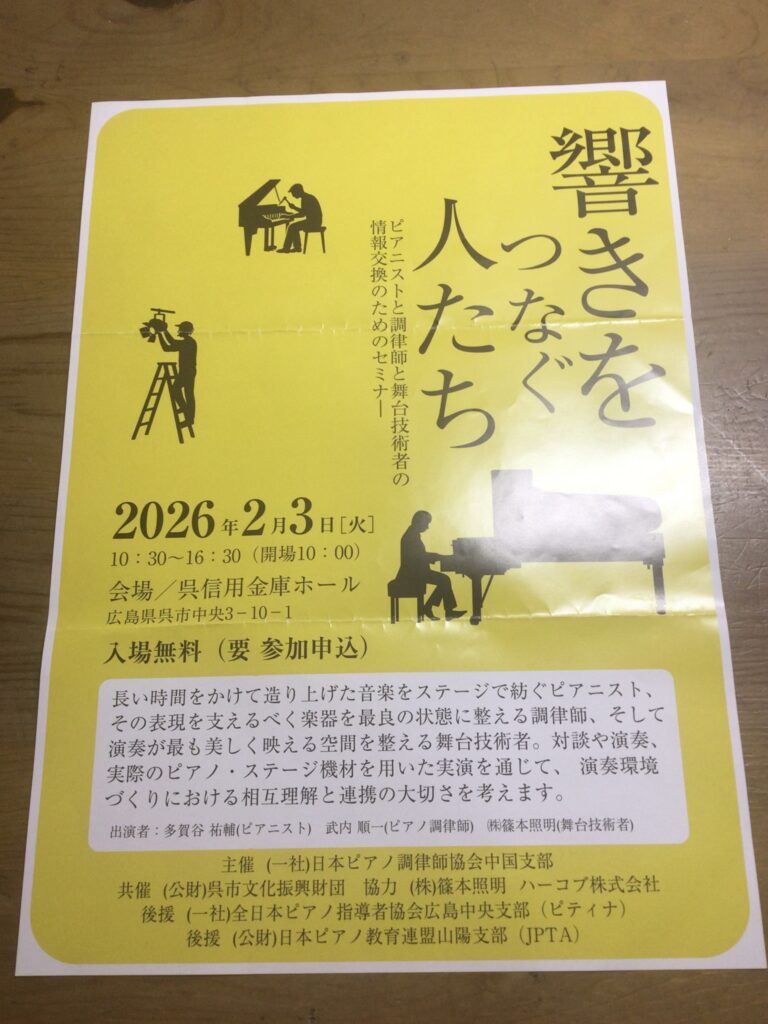 響きを
つなぐ
人たち
ピアニストと調律師と舞台技術者の
情報交換のためのセミナー
2026年2月3日[火]
10：30～16：30（開場10：00）
会場／呉信用金庫ホール
広島県呉市中央3－10－1
入場無料（要 参加申込）
長い時間をかけて造り上げた音楽をステージで紡ぐピアニスト、
その表現を支えるべく楽器を最良の状態に整える調律師、そして
演奏が最も美しく映える空間を整える舞台技術者。対談や演奏、
実際のピアノ・ステージ機材を用いた実演を通じて、 演奏環境
づくりにおける相互理解と連携の大切さを考えます。
出演者：多賀谷 祐輔(ピアニスト)　武内 順一(ピアノ調律師)　㈱篠本照明(舞台技術者)
主催　(一社)日本ピアノ調律師協会中国支部
共催　(公財)呉市文化振興財団　協力　(株)篠本照明　ハーコブ株式会社
後援　(一社)全日本ピアノ指導者協会広島中央支部（ピティナ）
後援　(公財)日本ピアノ教育連盟山陽支部（JPTA）